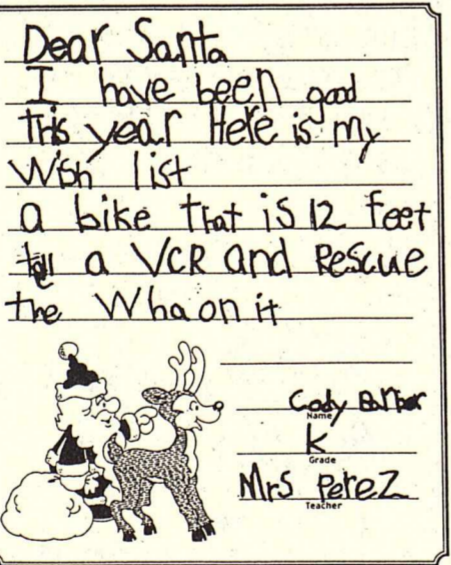 Dear Santa
I have been good
this year Here is my
Wish list
a bike that is 12 feet
tall a VCR and Rescue
the Wha on it
Cody
Name
K
Grade
Mrs Perez
Teacher